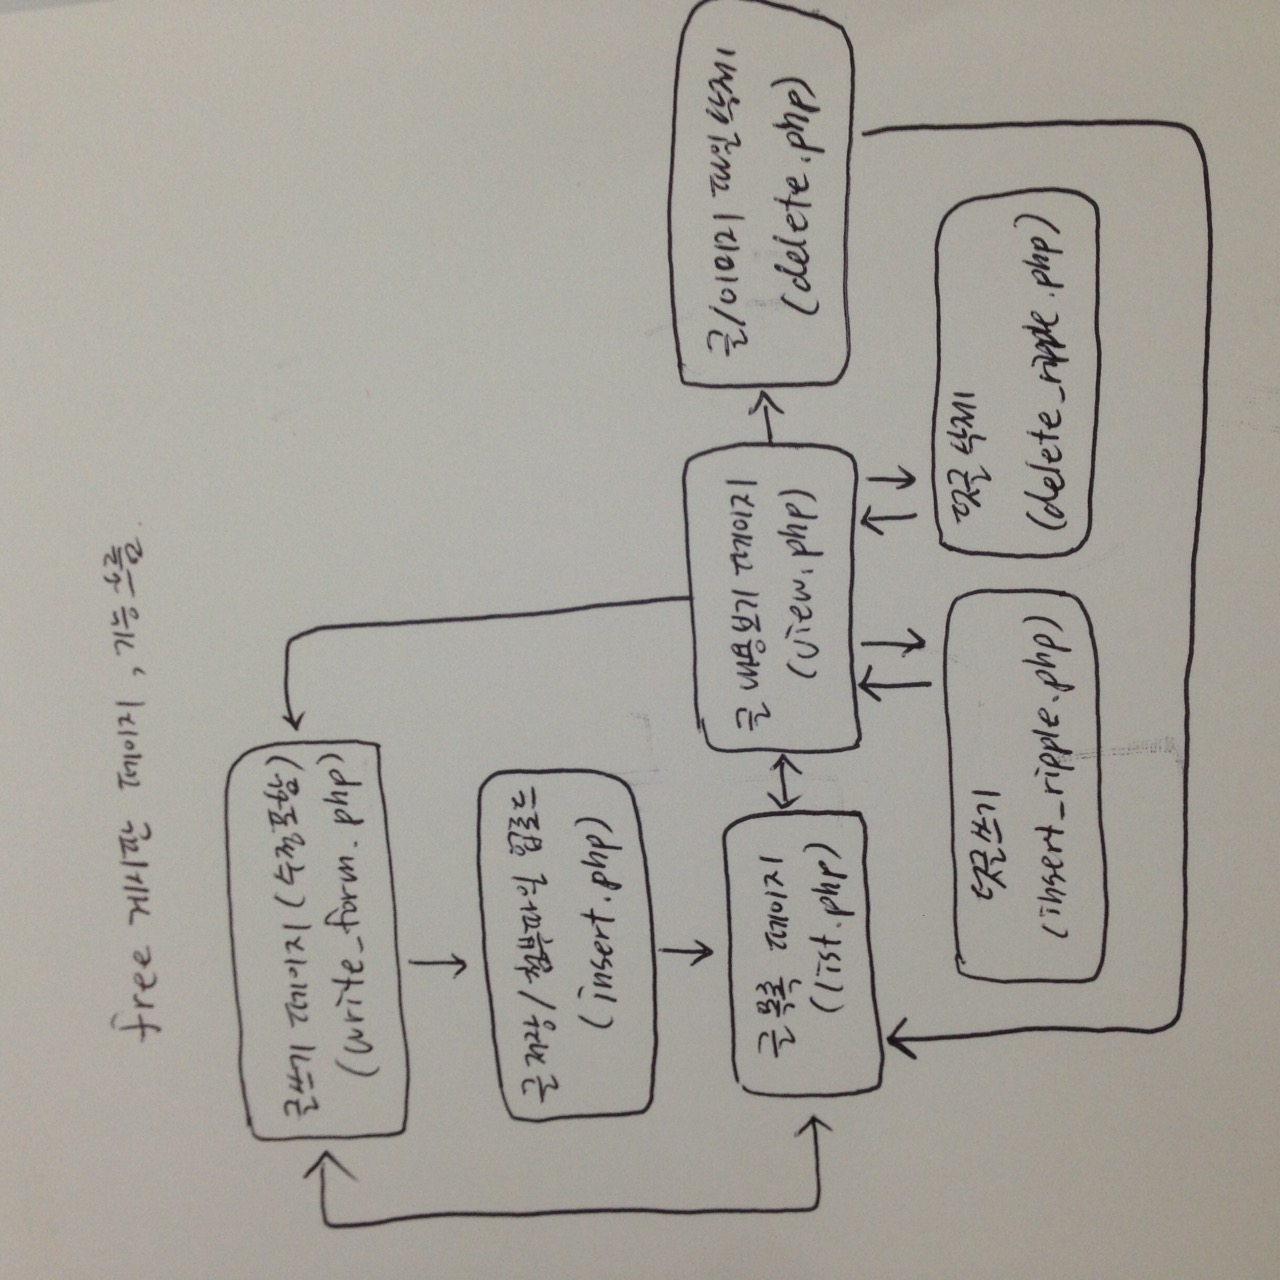 free 게시판 페이지, 기능 흐름.
글쓰기 페이지 (수정포함)
(write_form.php)
글 저장/첨부파일 업로드
(insert.php)
글 목록 페이지
(list.php)
글 내용보기 페이지
(view.php)
글/이미지 파일 삭제
(delete.php)
덧글쓰기
(insert_ripple.php)
덧글 삭제
(delete_ripple.php)